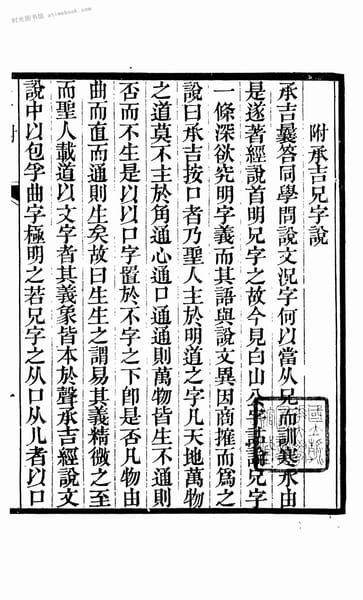 时光图书馆 atimebook.com
附承吉兄字說
承吉曩答同學問說文况字何以當从兄而訓寒水由
是遂著經說首明兄字之故今見白山公字詁論兄字
一條深欲究明字義而其語與說文異因商搉而爲之
說曰承吉按口者乃聖人主於明道之字凡天地萬物
之道莫不主於角通心通口通通則萬物皆生不通則
否而不生是以以口字置於不字之下卽是否凡物由
曲而直而通則生矣故曰生生之謂易其義精微之至
而聖人載道以文字者其義象皆本於聲承吉經說文
說中以包孚曲字極明之若兄字之从口从儿者以口